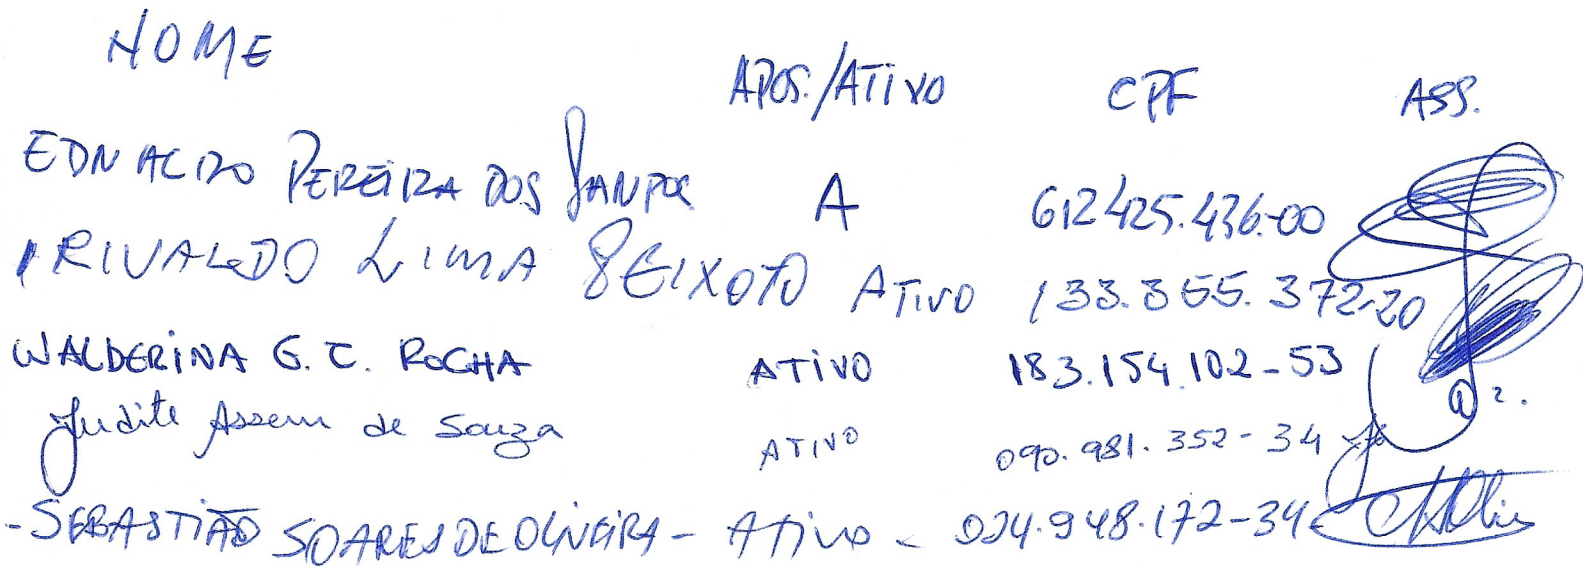 NOME APOS./ATIVO CPF ASS.
EDNALDO PEREIRA DOS SANTOS A 612425.436-00
RIVALDO LIMA PEIXOTO ATIVO 133.355.372-20
WALDERINA G. C. ROCHA ATIVO 183.154.102-53
Judite Assem de Souza ATIVO 090.981.352-34
- SEBASTIÃO SOARES DE OLIVEIRA - Ativo - 024.948.172-34